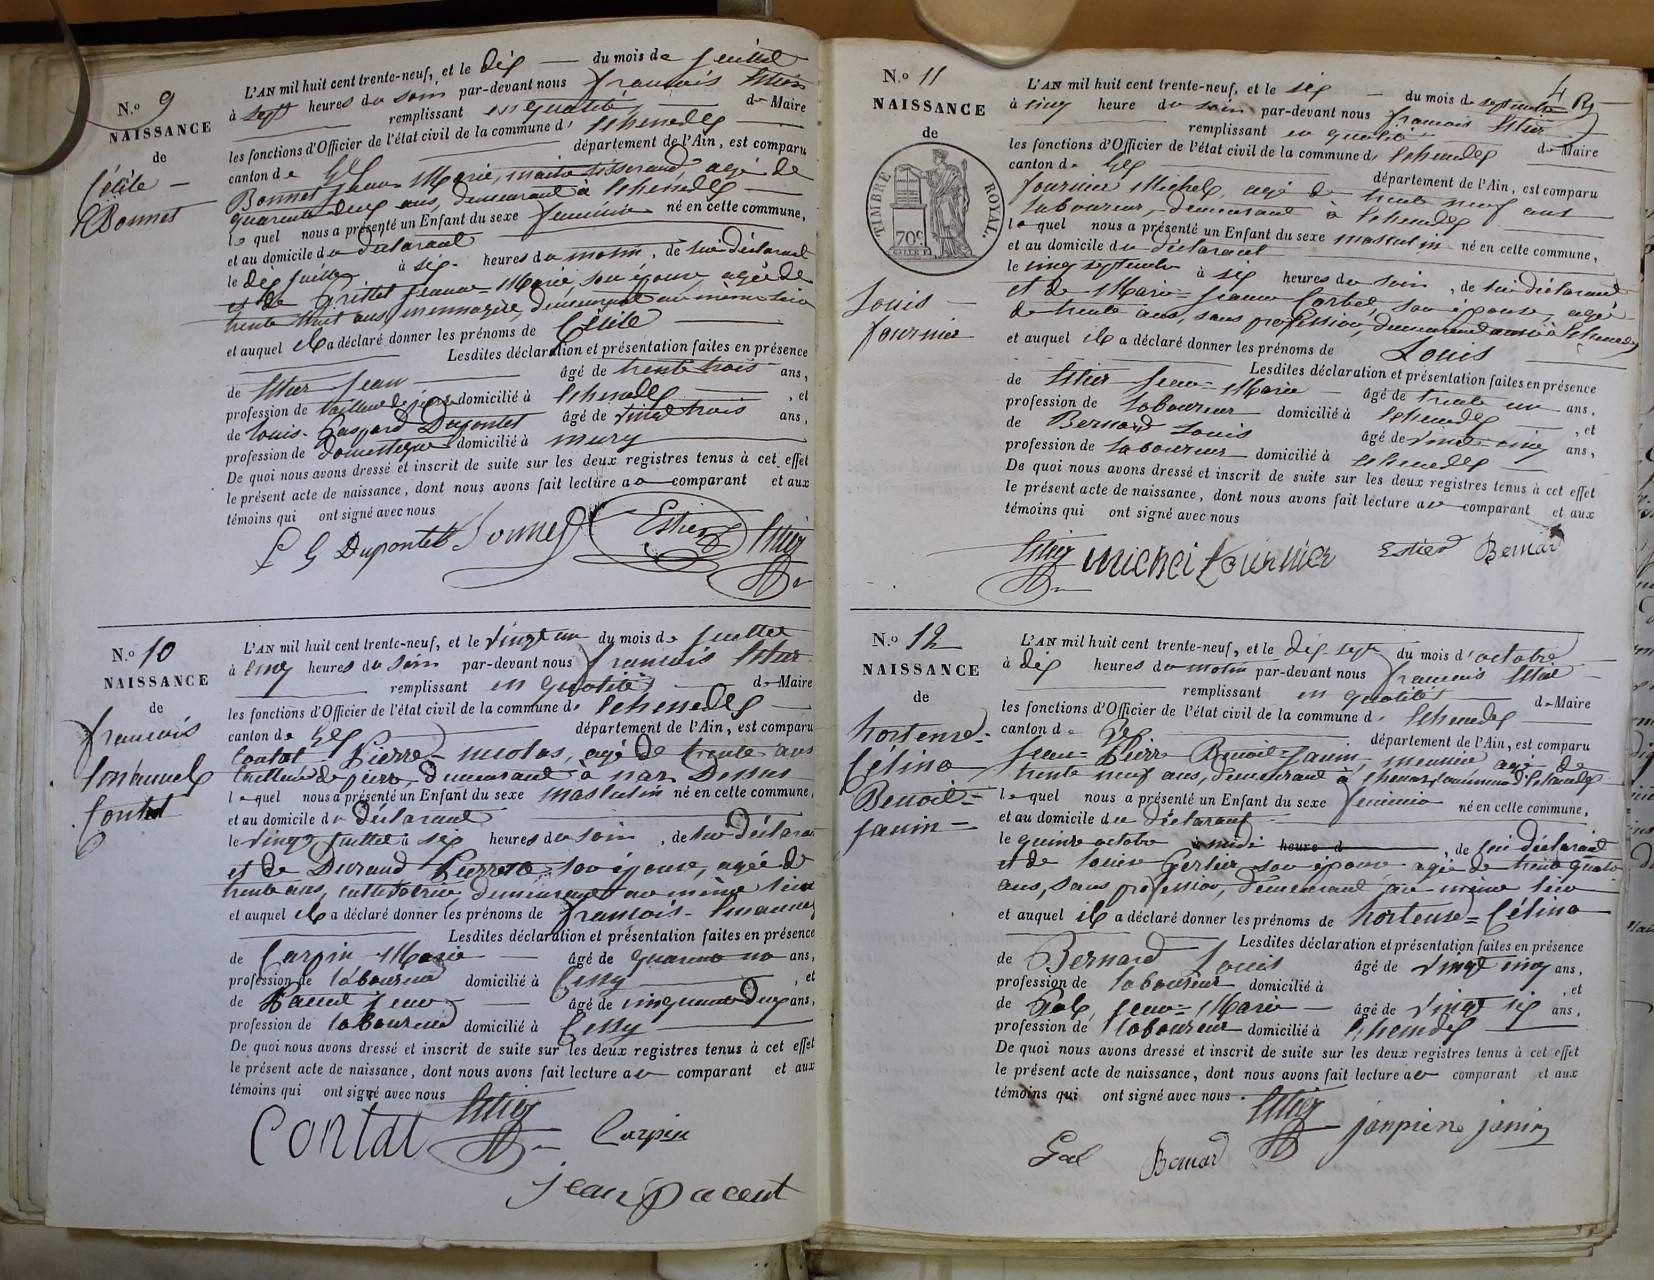 N.o 9
NAISSANCE
de
Cécile
Bonnet
L'AN mil huit cent trente-neuf, et le dix du mois de juillet
à sept heures du soir par-devant nous françois
remplissant en qualité de Maire
les fonctions d'Officier de l'état civil de la commune d' Echenevex
canton de Gex département de l'Ain, est comparu
Bonnet Jean Marie, maitre tisserand, agé de
quarante deux ans, demeurant à Echenevex
lequel nous a présenté un Enfant du sexe féminin né en cette commune,
et au domicile du déclarant
le dix juillet à six heures du matin, de lui déclarant
et de Jeanne Marie, son épouse, agée de
trente huit ans, menagère, demeurant au même lieu
et auquel il a déclaré donner les prénoms de Cécile
Lesdites déclaration et présentation faites en présence
de Jean âgé de trente trois ans,
profession de tailleur de pierre domicilié à Echenevex, et
de Louis Gaspard Dupontet âgé de vingt trois ans,
profession de domestique domicilié à
De quoi nous avons dressé et inscrit de suite sur les deux registres tenus à cet effet
le présent acte de naissance, dont nous avons fait lecture au comparant et aux
témoins qui ont signé avec nous
L G Dupontet Bonnet Estier
N.o 10
NAISSANCE
de
françois
Emanuel
Contat
L'AN mil huit cent trente-neuf, et le vingt un du mois de juillet
à cinq heures du soir par-devant nous françois
remplissant en qualité de Maire
les fonctions d'Officier de l'état civil de la commune d' Echenevex
canton de Gex département de l'Ain, est comparu
Contat Pierre-nicolas, agé de trente ans
tailleur de pierre, demeurant à naz Dessus
lequel nous a présenté un Enfant du sexe masculin né en cette commune,
et au domicile du déclarant
le vingt juillet à six heures du soir, de lui déclarant
et de Durand Pierrette, son épouse, agée de
trente ans, cultivatrice, demeurant au même lieu
et auquel il a déclaré donner les prénoms de françois-Emanuel
Lesdites déclaration et présentation faites en présence
de Carpin Marie âgé de ans,
profession de laboureur domicilié à Cessy, et
de Paccut Jean âgé de cinquante deux ans,
profession de laboureur domicilié à Cessy
De quoi nous avons dressé et inscrit de suite sur les deux registres tenus à cet effet
le présent acte de naissance, dont nous avons fait lecture au comparant et aux
témoins qui ont signé avec nous
Contat Carpin
jean paccut
4
N.o 11
NAISSANCE
de
TIMBRE ROYAL.
70c
Louis
fournier
L'AN mil huit cent trente-neuf, et le six du mois de septembre
à cinq heure du soir par-devant nous françois
remplissant en qualité de Maire
les fonctions d'Officier de l'état civil de la commune d' Echenevex
canton de Gex département de l'Ain, est comparu
fournier Michel, agé de trente neuf ans
laboureur, demeurant à Echenevex
lequel nous a présenté un Enfant du sexe masculin né en cette commune,
et au domicile du déclarant
le cinq septembre à six heures du soir, de lui déclarant
et de Marie-Jeanne, son épouse, agée
de trente ans, sans profession, demeurant aussi à Echenevex
et auquel il a déclaré donner les prénoms de Louis
Lesdites déclaration et présentation faites en présence
de Jean-Marie âgé de trente un ans,
profession de laboureur domicilié à Echenevex, et
de Bernard Louis âgé de vingt-cinq ans,
profession de laboureur domicilié à Echenevex
De quoi nous avons dressé et inscrit de suite sur les deux registres tenus à cet effet
le présent acte de naissance, dont nous avons fait lecture au comparant et aux
témoins qui ont signé avec nous
michel fournier Estier Bernard
N.o 12
NAISSANCE
de
hortense-
Célina
Benoit-
Janin
L'AN mil huit cent trente-neuf, et le dix sept du mois d'octobre
à dix heures du matin par-devant nous françois
remplissant en qualité de Maire
les fonctions d'Officier de l'état civil de la commune d' Echenevex
canton de Gex département de l'Ain, est comparu
Jean-Pierre Benoit-Janin, meunier agé de
trente neuf ans, demeurant à commune d'Echenevex
lequel nous a présenté un Enfant du sexe féminin né en cette commune,
et au domicile du déclarant
le quinze octobre à midi heure d, de lui déclarant
et de Louise son épouse agée de trente quatre
ans, sans profession, demeurant au même lieu
et auquel il a déclaré donner les prénoms de hortense-Célina
Lesdites déclaration et présentation faites en présence
de Bernard Louis âgé de vingt cinq ans,
profession de laboureur domicilié à, et
de Gal, Jean-Marie âgé de vingt six ans,
profession de laboureur domicilié à Echenevex
De quoi nous avons dressé et inscrit de suite sur les deux registres tenus à cet effet
le présent acte de naissance, dont nous avons fait lecture au comparant et aux
témoins qui ont signé avec nous.
janpierre janin
Gal Bernard